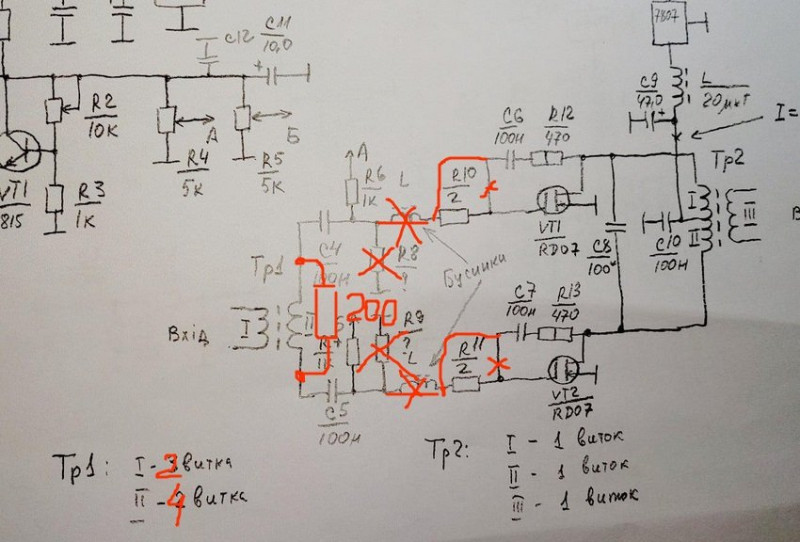 7807
C12
C11
10,0
+
C9
47,0
+
L
20мкГ
I=
R2
10К
R4
5К
А
R5
5К
Б
R3
1К
VT1
815
А
R6
1К
L
C6
100Н
R12
470
R10
2
VT1
RD07
C8
100Н
C10
100Н
Тр2
I
II
III
В
Тр1
C4
100Н
R8
?
Бусинки
Вхід
I
II
200
R7
1К
R9
?
L
C7
100Н
R13
470
R11
2
VT2
RD07
C5
100Н
Тр1: I - 2 витка
II - 4 витка
Тр2: I - 1 виток
II - 1 виток
III - 1 виток